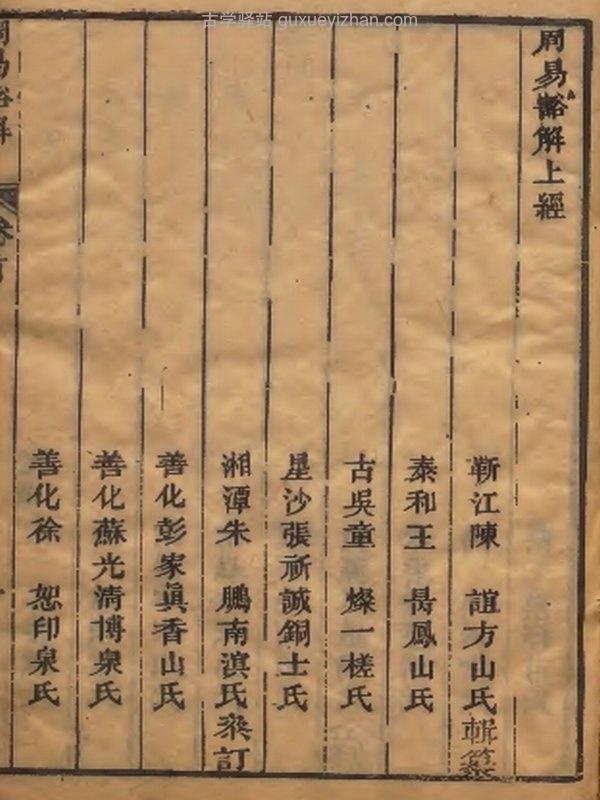 古学驿站 guxueyizhan.com
周易豁解上經
靳江陳　誼方山氏輯纂
泰和王　岳鳳山氏
古吳童　燦一槎氏
星沙張祈誠銅士氏
湘潭朱　鵬南滇氏叅訂
善化彭家眞香山氏
善化蘇光清博泉氏
善化徐　恕印泉氏
周易豁解